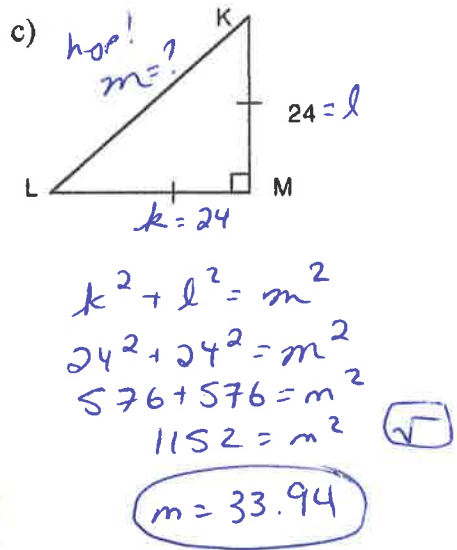 c)
hop!
m=?
K
24 = l
L
M
k = 24
k² + l² = m²
24² + 24² = m²
576 + 576 = m²
1152 = m²
√
m = 33.94